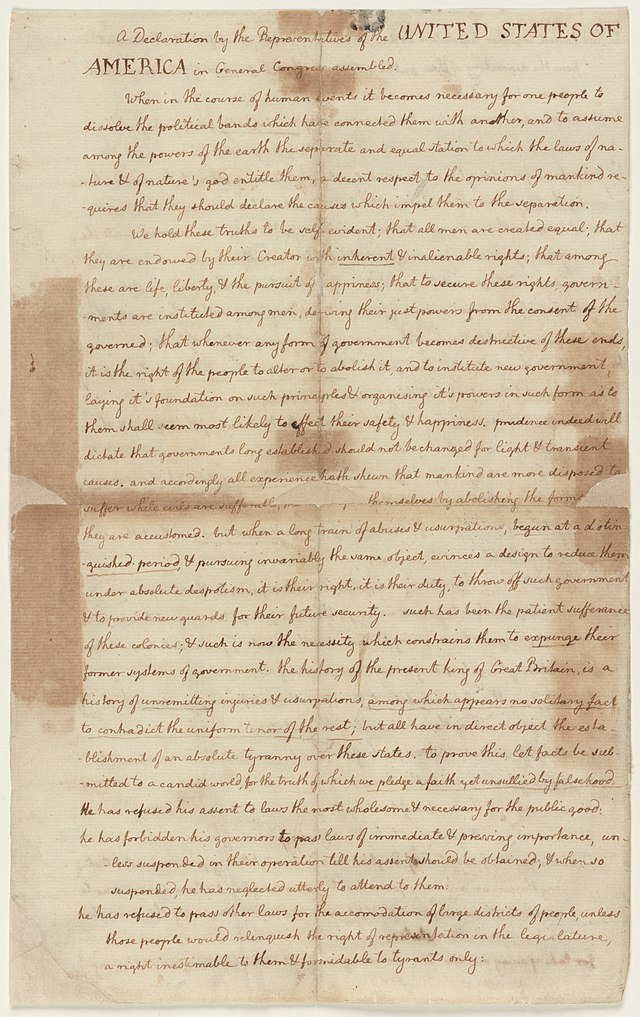 A Declaration by the Representatives of the UNITED STATES OF
AMERICA in General Congress assembled.
When in the course of human events it becomes necessary for one people to
dissolve the political bands which have connected them with another, and to assume
among the powers of the earth the separate and equal station to which the laws of na-
-ture & of nature's god entitle them, a decent respect to the opinions of mankind re-
-quires that they should declare the causes which impel them to the separation.
We hold these truths to be self-evident; that all men are created equal; that
they are endowed by their Creator with inherent & inalienable rights; that among
these are life, liberty, & the pursuit of happiness; that to secure these rights, govern-
-ments are instituted among men, deriving their just powers from the consent of the
governed; that whenever any form of government becomes destructive of these ends,
it is the right of the people to alter or to abolish it, and to institute new government,
laying it's foundation on such principles & organising it's powers in such form as to
them shall seem most likely to effect their safety & happiness. prudence indeed will
dictate that governments long established should not be changed for light & transient
causes. and accordingly all experience hath shewn that mankind are more disposed to
suffer while evils are sufferable, themselves by abolishing the forms
they are accustomed. but when a long train of abuses & usurpations, begun at a distin-
-guished period, & pursuing invariably the same object, evinces a design to reduce them
under absolute despotism, it is their right, it is their duty, to throw off such government
& to provide new guards for their future security. such has been the patient sufferance
of these colonies; & such is now the necessity which constrains them to expunge their
former systems of government. the history of the present king of Great Britain, is a
history of unremitting injuries & usurpations, among which appears no solitary fact
to contradict the uniform tenor of the rest; but all have in direct object the esta-
-blishment of an absolute tyranny over these states. to prove this, let facts be sub-
-mitted to a candid world, for the truth of which we pledge a faith yet unsullied by falsehood.
He has refused his assent to laws the most wholesome & necessary for the public good:
he has forbidden his governors to pass laws of immediate & pressing importance, un-
-less suspended in their operation till his assent should be obtained; & when so
suspended, he has neglected utterly to attend to them.
he has refused to pass other laws for the accomodation of large districts of people, unless
those people would relinquish the right of representation in the legislature,
a right inestimable to them & formidable to tyrants only: